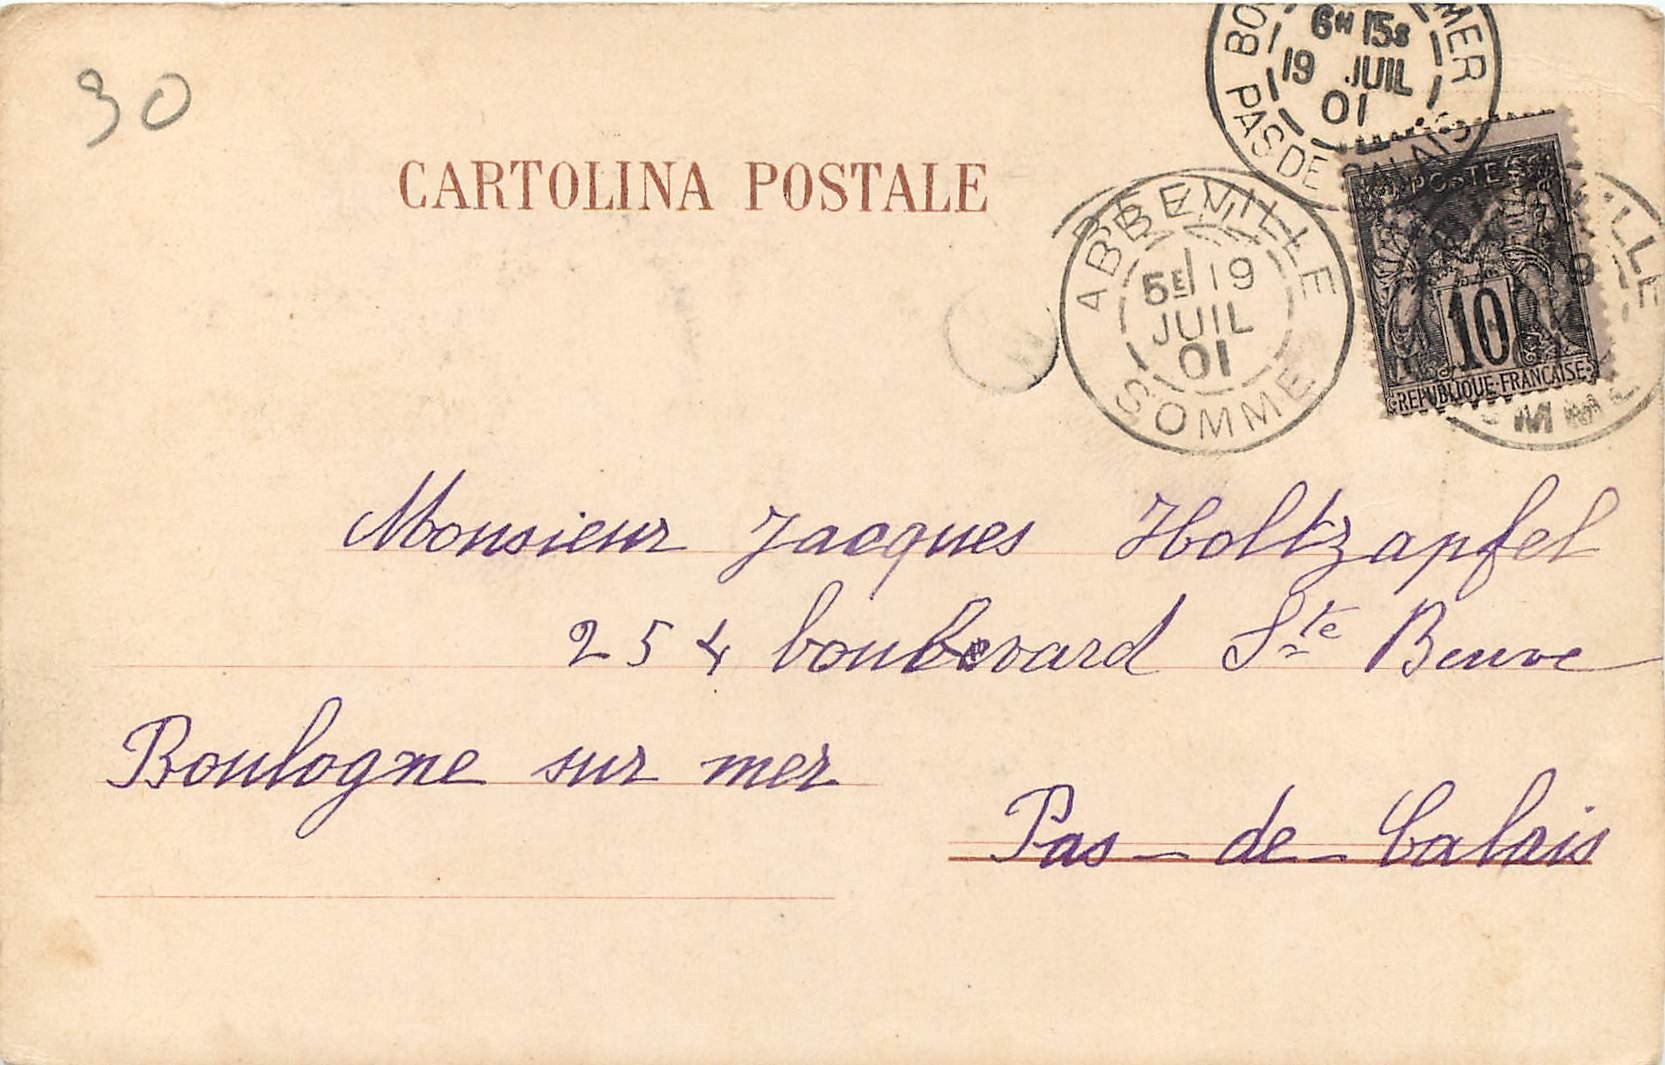 30
CARTOLINA POSTALE
6H 15S
19 JUIL
01
PAS DE CALAIS
ABBEVILLE
5E 19
JUIL
01
SOMME
POSTES
10
REPUBLIQUE FRANCAISE
Monsieur Jacques Holtzapfel
254 boulevard Ste Beuve
Boulogne sur mer
Pas-de-Calais